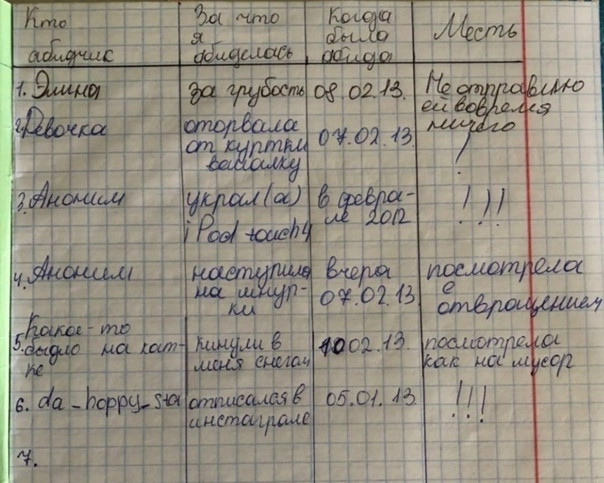 Кто
абидчик
За что
я
абиделась
Когда
была
абида
Месть
1. Элина
за грубость
08.02.13.
Не отправлю
ей вовремя
ничего
2. Девочка
оторвала
от куртки
07.02.13.
!
3. Аноним
украл(а)
iPod touch 4
в февра-
ле 2012
!!!
4. Аноним
наступила
на шнур-
ки
вчера
07.02.13.
посмотрела
с
отвращением
Какое-то
5. быдло на кат-
ке
кинули в
меня снегом
10 02.13.
посмотрела
как на мусор
6. da_happy_sta
отписался в
инстаграме
05.01.13.
!!!
7.